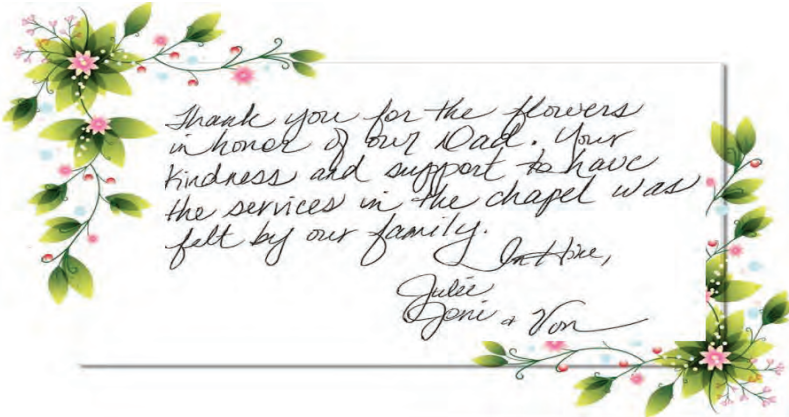 Thank you for the flowers
in honor of our Dad. Your
kindness and support to have
the services in the chapel was
felt by our family.
In Him,
Julie
Joni & Von